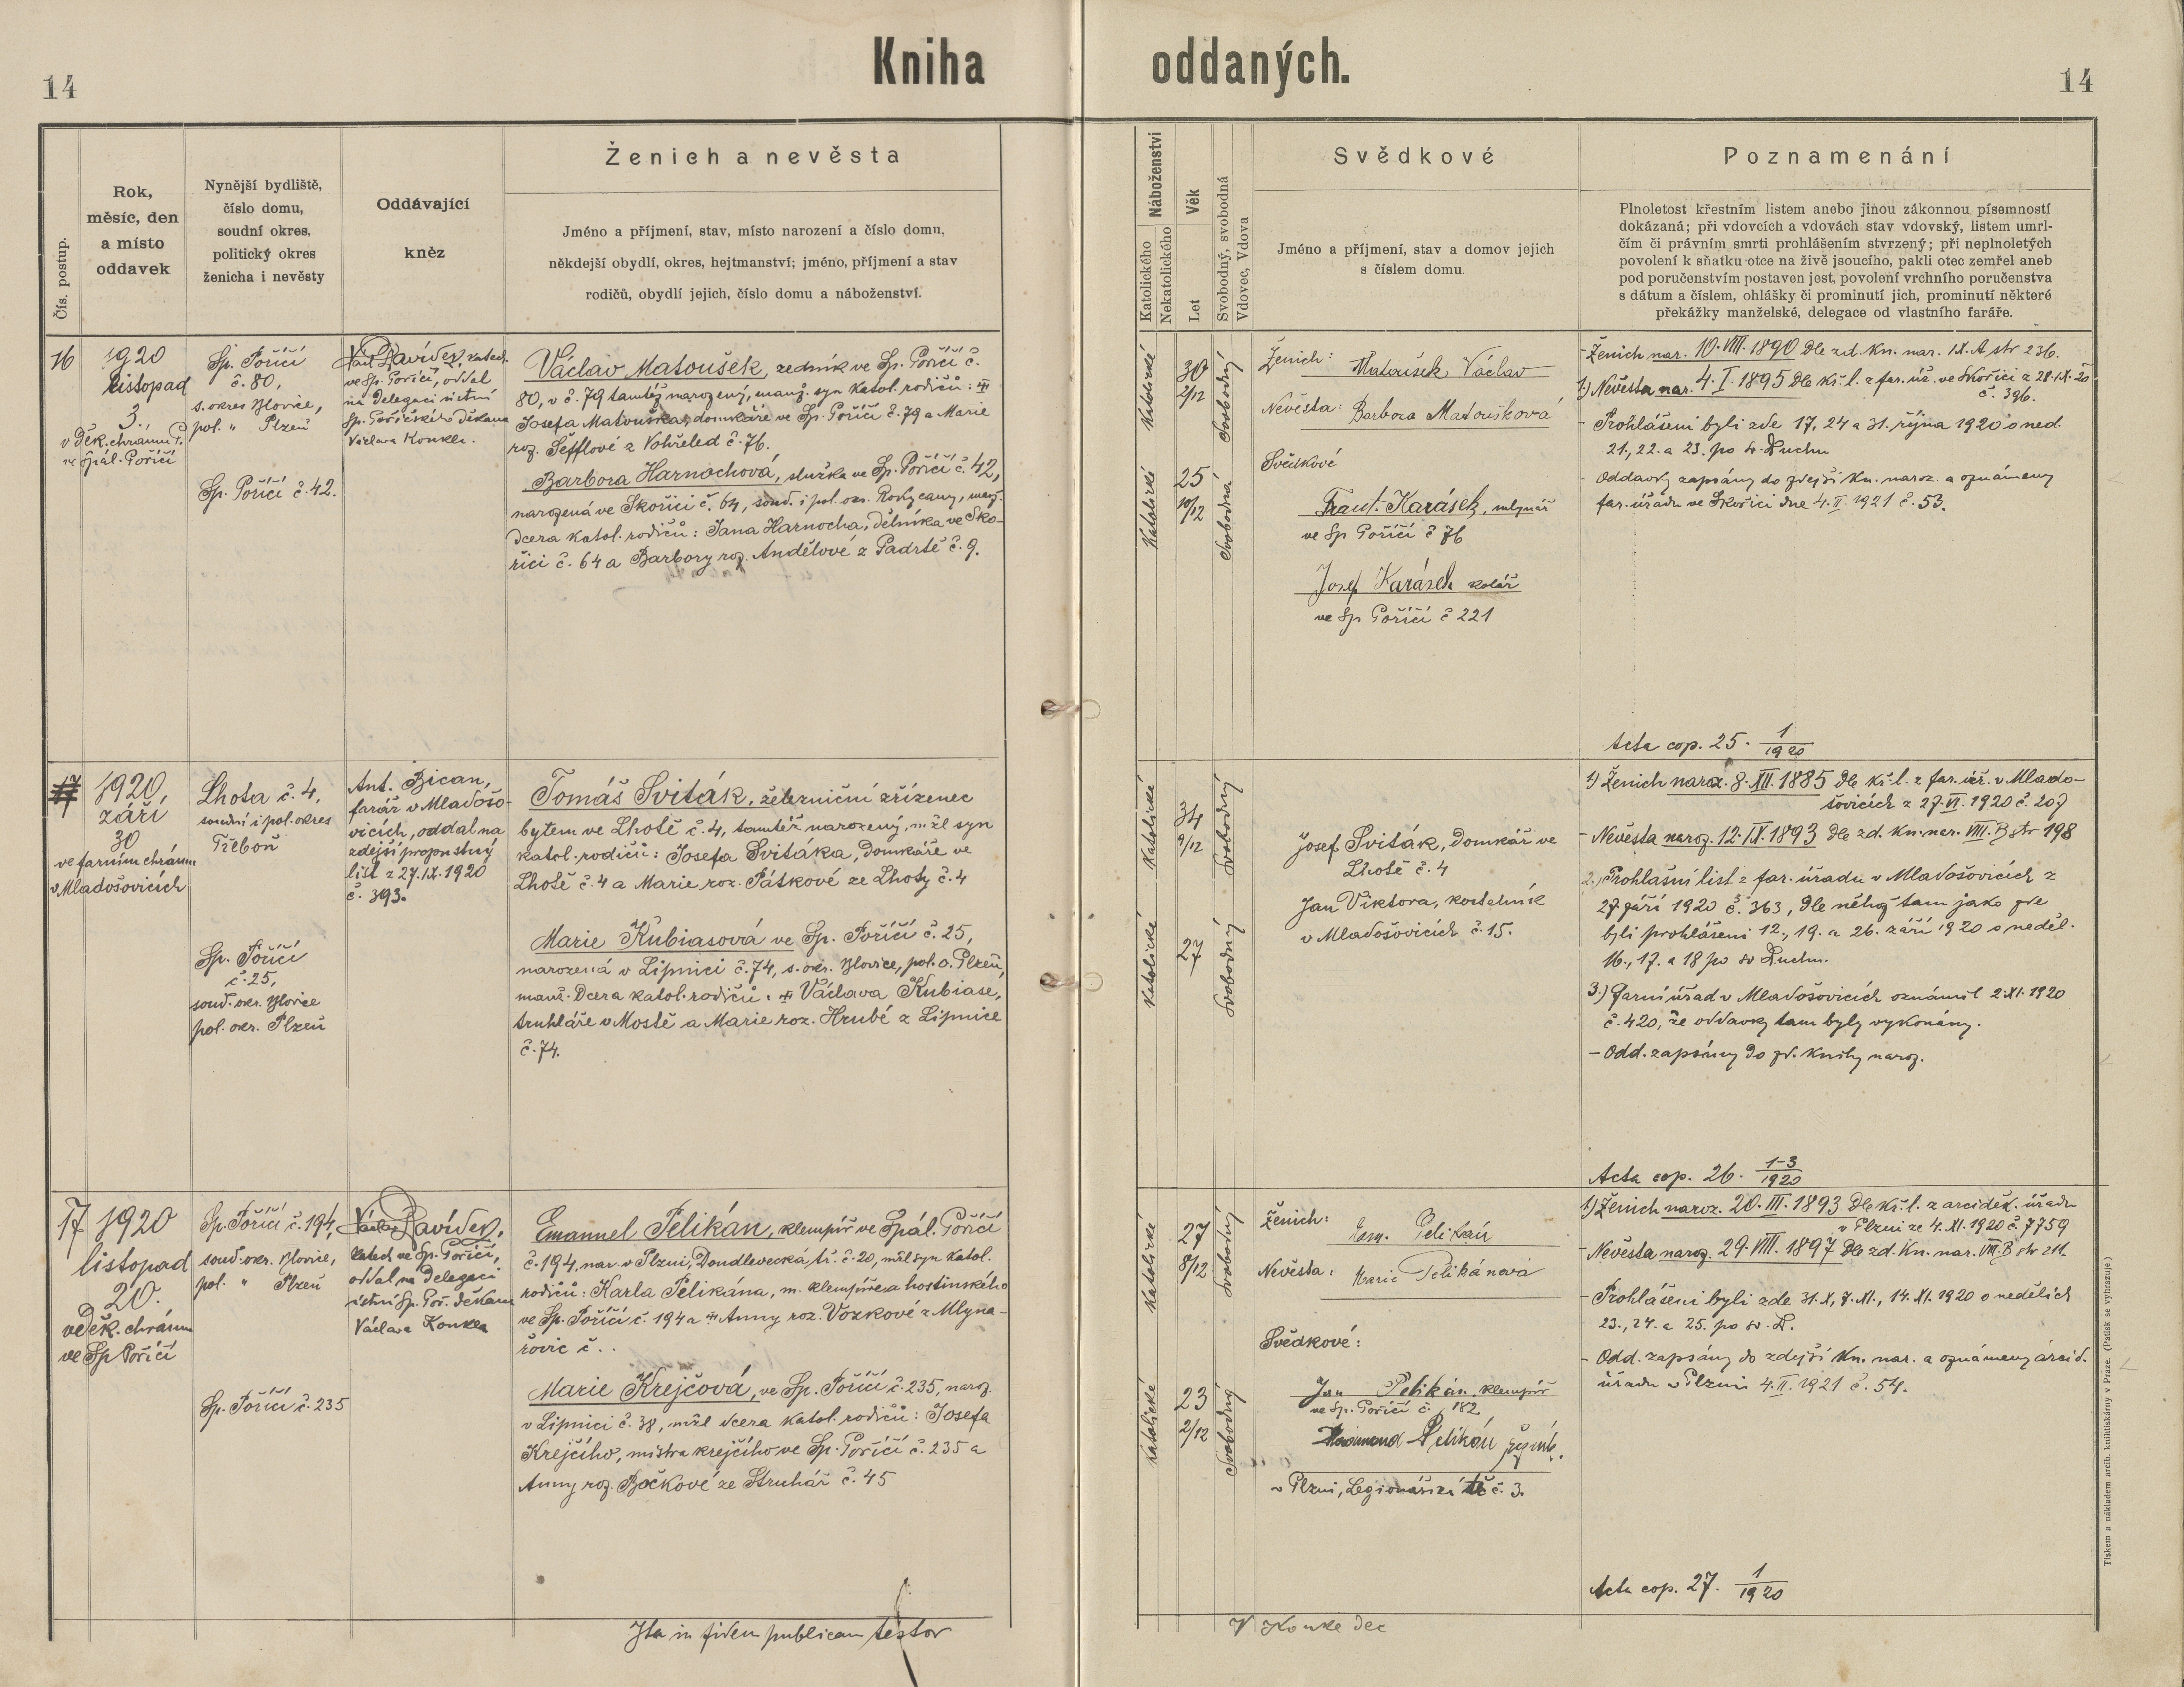 14
Kniha oddaných.
14
Čís. postup.
Rok,
měsíc, den
a místo
oddavek
Nynější bydliště,
číslo domu,
soudní okres,
politický okres
ženicha i nevěsty
Oddávající
kněz
Ženich a nevěsta
Jméno a příjmení, stav, místo narození a číslo domu,
někdejší obydlí, okres, hejtmanství; jméno, příjmení a stav
rodičů, obydlí jejich, číslo domu a náboženství.
Náboženství
Katolického
Nekatolického
Věk
Let
Svobodný, svobodná
Vdovec, Vdova
Svědkové
Jméno a příjmení, stav a domov jejich
s číslem domu.
Poznamenání
Plnoletost křestním listem anebo jinou zákonnou písemností
dokázaná; při vdovcích a vdovách stav vdovský, listem umrl-
čím či právním smrti prohlášením stvrzený; při neplnoletých
povolení k sňatku otce na živě jsoucího, pakli otec zemřel aneb
pod poručenstvím postaven jest, povolení vrchního poručenstva
s dátum a číslem, ohlášky či prominutí jich, prominutí některé
překážky manželské, delegace od vlastního faráře.
16
1920
listopad
3.
v děk. chrámu P.
ve Spál. Poříčí
Sp. Poříčí
č. 80,
s. okres Blovice,
pol. " Plzeň
Sp. Poříčí č. 42.
Davídek, katech.
ve Sp. Poříčí, oddal
na delegaci ústní
Sp. Poříčského děkana
Václava Konkla.
Václav Matoušek, zedník ve Sp. Poříčí č.
80, v č. 79 tamtéž narozený, manž. syn katol. rodičů: #
Josefa Matouška, domkáře ve Sp. Poříčí č. 79 a Marie
roz. Šefflové z Vohřeled č. 76.
Barbora Harnochová, služka ve Sp. Poříčí č. 42,
narozená ve Skořici č. 64, soud. i pol. okr. Rokycany, manž.
dcera katol. rodičů: Jana Harnocha, dělníka ve Sko-
řici č. 64 a Barbory roz. Andělové z Padrtě č. 9.
Katolické
30
2/12
Svobodný
Katolické
25
10/12
Svobodná
Ženich: Matoušek Václav
Nevěsta: Barbora Matoušková
Svědkové
Frant. Karásek, mlynář
ve Sp Poříčí č 76
Josef Karásek kolář
ve Sp Poříčí č 221
- Ženich nar. 10. VIII. 1890 dle zd. kn. nar. IX. A str 236.
1.) Nevěsta nar. 4. I. 1895 dle kř. l. z far. úř. ve Skořici z 28. IX. 20
č. 396.
- Prohlášeni byli zde 17, 24 a 31. října 1920 o ned.
21., 22. a 23. po sv. Duchu
- Oddavky zapsány do zdejší kn. naroz. a oznámeny
far. úřadu ve Skořici dne 4. II. 1921 č. 53.
Acta cop. 25. 1/1920
1920,
září
30
ve farním chrámu
v Mladošovicích
Lhota č. 4,
soudní i pol. okres
Třeboň
Sp. Poříčí
č. 25,
soud. okr. Blovice
pol. okr. Plzeň
Ant. Bican,
farář v Mladošo-
vicích, oddal na
zdejší propustný
list z 27. IX. 1920
č. 393.
Tomáš Sviták, železniční zřízenec
bytem ve Lhotě č. 4, tamtéž narozený, mžl syn
katol. rodičů: Josefa Svitáka, domkáře ve
Lhotě č. 4 a Marie roz. Pátkové ze Lhoty č. 4
Marie Kubiasová ve Sp. Poříčí č. 25,
narozená v Lipnici č. 74, s. okr. Blovice, pol. o. Plzeň,
manž. dcera katol. rodičů: # Václava Kubiase,
truhláře v Mostě a Marie roz. Hrubé z Lipnice
č. 74.
Katolické
34
9/12
Svobodný
Katolické
27
Svobodný
Josef Sviták, domkář ve
Lhotě č. 4
Jan Viktora, kostelník
v Mladošovicích č. 15.
1) Ženich naroz. 8. XII. 1885 dle kř. l. z far. úř. v Mlado-
šovicích z 27. VI. 1920 č. 207
- Nevěsta naroz. 12. IX. 1893 dle zd. kn. nar. VIII. B str 198
2.) Prohlášní list z far. úřadu v Mladošovicích z
27 září 1920 č. 363, dle něhož tam jako zde
byli prohlášeni 12., 19. a 26. září 1920 o neděl.
16., 17. a 18 po sv Duchu.
3.) Farní úřad v Mladošovicích oznámil 2. XI. 1920
č. 420, že oddavky tam byly vykonány.
- Odd. zapsány do zd. knihy naroz.
Acta cop. 26. 1-3/1920
17
1920
listopad
20.
v děk. chrámu
ve Sp Poříčí
Sp. Poříčí č. 194,
soud. okr. Blovice,
pol. " Plzeň
Sp. Poříčí č. 235
Václav Davídek,
katech. ve Sp. Poříčí,
oddal na delegaci
ústní Sp. Poř. děkana
Václava Konkla
Emanuel Pelikán, klempíř ve Spál. Poříčí
č. 194, nar. v Plzni, Doudlevecká tř. č. 20, mžl syn katol.
rodičů: Karla Pelikána, m. klempířa a hostinského
ve Sp. Poříčí č. 194 a # Anny roz. Vozkové z Mlyna-
řovic č. . .
Marie Krejčová, ve Sp. Poříčí č. 235, naroz.
v Lipnici č. 38, mžl dcera katol. rodičů: Josefa
Krejčího, mistra krejčího ve Sp. Poříčí č. 235 a
Anny roz. Bočkové ze Struhař č. 45
Katolické
27
8/12
Svobodný
Katolické
23
2/12
Svobodný
Ženich: Em. Pelikán
Nevěsta: Marie Pelikánová
Svědkové:
Jan Pelikán klempíř
ve Sp. Poříčí č. 182
Pelikán
v Plzni, Legionářská tř č. 3.
1) Ženich naroz. 20. III. 1893 dle kř. l. z arciděk. úřadu
v Plzni ze 4. XI. 1920 č. 7759
- Nevěsta naroz. 29. VIII. 1897 dle zd. kn. nar. VIII. B str 211.
- Prohlášeni byli zde 31. X, 7. XI., 14. XI. 1920 o nedělích
23., 24. a 25. po sv. D.
- Odd. zapsány do zdejší kn. nar. a oznámeny arcid.
úřadu v Plzni 4. II. 1921 č. 54.
Acta cop. 27. 1/1920
Ita in fidem publicam testor
V Konke dec
Tiskem a nákladem arcib. knihtiskárny v Praze. (Patisk se vyhrazuje.)